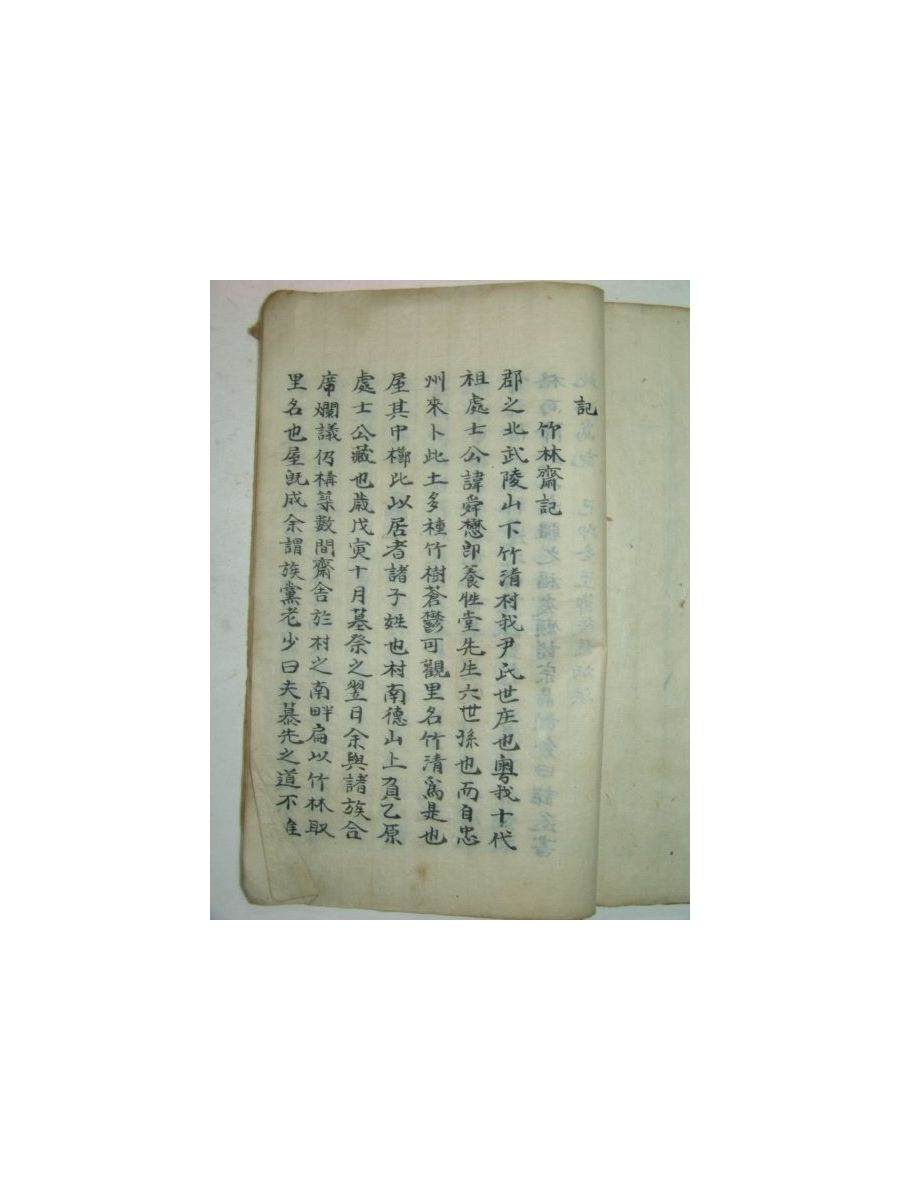 記
竹林齋記
郡之北武陵山下竹淸村我尹氏世庄也粤我十代
祖處士公諱舜懋卽養性堂先生六世孫也而自忠
州來卜此土多種竹樹蒼鬱可觀里名竹淸爲是也
屋其中櫛比以居者諸子姓也村南德山上負乙原
處士公藏也歲戊寅十月墓祭之翌日余與諸族合
席爛議仍構築數間齋舍於村之南畔扁以竹林取
里名也屋旣成余謂族黨老少曰夫慕先之道不隹